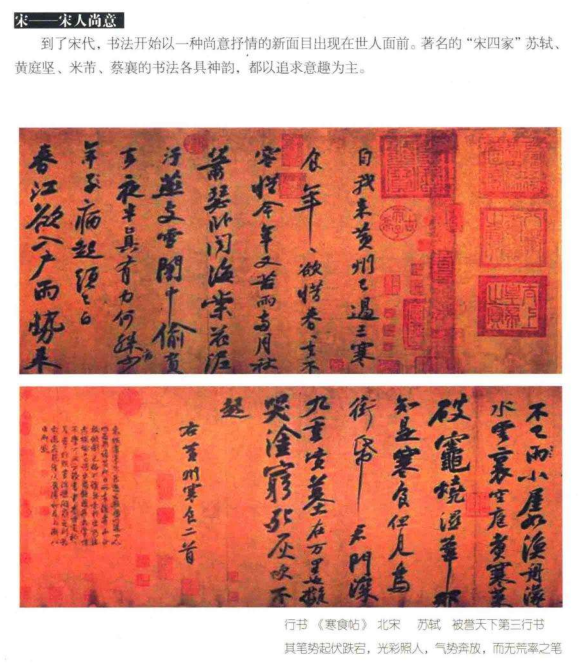 宋——宋人尚意
到了宋代，书法开始以一种尚意抒情的新面目出现在世人面前。著名的“宋四家”苏轼、
黄庭坚、米芾、蔡襄的书法各具神韵，都以追求意趣为主。
自我来黄州已過三寒
食年〻欲惜春〻去不
容惜今年又苦雨兩月秋
蕭瑟卧聞海棠花泥
汙燕支雪闇中偷負
去夜半真有力何殊少
年子病起頭已白
春江欲入戶雨勢来
不已雨小屋如漁舟濛
水雲裏空庖煮寒菜
破竈燒濕葦那
知是寒食但見烏
銜帋君門深
九重墳墓在万里也擬
哭塗窮死灰吹不
起
右黃州寒食二首
行书 《寒食帖》 北宋 苏轼 被誉天下第三行书
其笔势起伏跌宕，光彩照人，气势奔放，而无荒率之笔